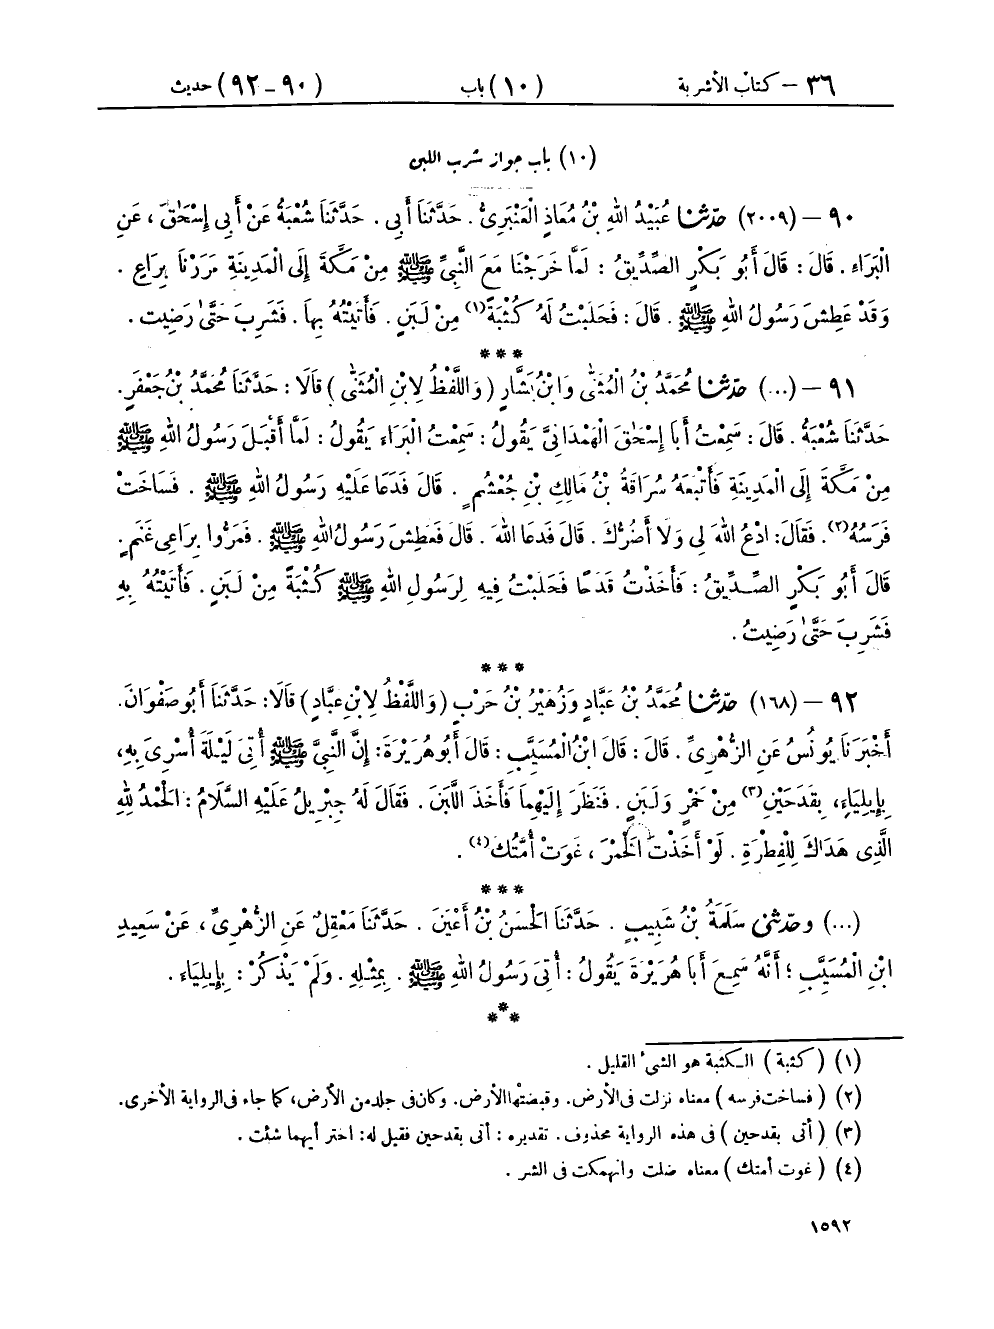 ٣٦ – كتاب الأشربة (١٠) باب (٩٠-٩٢) حديث
(١٠) باب جواز شرب اللبن
٩٠ – (٢٠٠٩) حدّثنا عُبَيْدُ اللهِ بْنُ مُعَاذٍ الْعَنْبَرِىُّ . حَدَّثَنَا أَبِى . حَدَّثَنَا شُعْبَةُ عَنْ أَبِى إِسْحَاقَ ، عَنِ
الْبَرَاءِ . قَالَ : قَالَ أَبُو بَكْرٍ الصِّدِّيقُ : لَمَّا خَرَجْنَا مَعَ النَّبِىِّ ﷺ مِنْ مَكَّةَ إِلَى الْمَدِينَةِ مَرَرْنَا بِرَاعٍ .
وَقَدْ عَطِشَ رَسُولُ اللهِ ﷺ . قَالَ : فَحَلَبْتُ لَهُ كُثْبَةً(١) مِنْ لَبَنٍ . فَأَتَيْتُهُ بِهَا . فَشَرِبَ حَتَّىٰ رَضِيتُ .
***
٩١ – (...) حدّثنا مُحَمَّدُ بْنُ الْمُثَنَّى وَابْنُ بَشَّارٍ ( وَاللَّفْظُ لِابْنِ الْمُثَنَّى ) قَالَا : حَدَّثَنَا مُحَمَّدُ بْنُ جَعْفَرٍ .
حَدَّثَنَا شُعْبَةُ . قَالَ : سَمِعْتُ أَبَا إِسْحَاقَ الْهَمْدَانِىَّ يَقُولُ : سَمِعْتُ الْبَرَاءَ يَقُولُ : لَمَّا أَقْبَلَ رَسُولُ اللهِ ﷺ
مِنْ مَكَّةَ إِلَى الْمَدِينَةِ فَأَتْبَعَهُ سُرَاقَةُ بْنُ مَالِكِ بْنِ جُعْشُمٍ . قَالَ فَدَعَا عَلَيْهِ رَسُولُ اللهِ ﷺ . فَسَاخَتْ
فَرَسُهُ(٢) . فَقَالَ : ادْعُ اللهَ لِى وَلَا أَضُرُّكَ . قَالَ فَدَعَا اللهَ . قَالَ فَعَطِشَ رَسُولُ اللهِ ﷺ . فَمَرُّوا بِرَاعِى غَنَمٍ .
قَالَ أَبُو بَكْرٍ الصِّدِّيقُ : فَأَخَذْتُ قَدَحًا فَحَلَبْتُ فِيهِ لِرَسُولِ اللهِ ﷺ كُثْبَةً مِنْ لَبَنٍ . فَأَتَيْتُهُ بِهِ
فَشَرِبَ حَتَّىٰ رَضِيتُ .
***
٩٢ – (١٦٨) حدّثنا مُحَمَّدُ بْنُ عَبَّادٍ وَزُهَيْرُ بْنُ حَرْبٍ ( وَاللَّفْظُ لِابْنِ عَبَّادٍ ) قَالَا : حَدَّثَنَا أَبُو صَفْوَانَ .
أَخْبَرَنَا يُونُسُ عَنِ الزُّهْرِىِّ . قَالَ : قَالَ ابْنُ الْمُسَيَّبِ : قَالَ أَبُو هُرَيْرَةَ : إِنَّ النَّبِىَّ ﷺ أُتِىَ لَيْلَةَ أُسْرِىَ بِهِ ،
بِإِيلِيَاءَ ، بِقَدَحَيْنِ(٣) مِنْ خَمْرٍ وَلَبَنٍ . فَنَظَرَ إِلَيْهِمَا فَأَخَذَ اللَّبَنَ . فَقَالَ لَهُ جِبْرِيلُ عَلَيْهِ السَّلَامُ : الْحَمْدُ لِلهِ
الَّذِى هَدَاكَ لِلْفِطْرَةِ . لَوْ أَخَذْتَ الْخَمْرَ ، غَوَتْ أُمَّتُكَ(٤) .
***
(...) وحدّثنى سَلَمَةُ بْنُ شَبِيبٍ . حَدَّثَنَا الْحَسَنُ بْنُ أَعْيَنَ . حَدَّثَنَا مَعْقِلٌ عَنِ الزُّهْرِىِّ ، عَنْ سَعِيدِ
ابْنِ الْمُسَيَّبِ ؛ أَنَّهُ سَمِعَ أَبَا هُرَيْرَةَ يَقُولُ : أُتِىَ رَسُولُ اللهِ ﷺ . بِمِثْلِهِ . وَلَمْ يَذْكُرْ : بِإِيلِيَاءَ .
***
(١) ( كثبة ) الكثبة هو الشىء القليل .
(٢) ( فساخت فرسه ) معناه نزلت فى الأرض . وقبضتها الأرض . وكان فى جلد من الأرض ، كما جاء فى الرواية الأخرى .
(٣) ( أتى بقدحين ) فى هذه الرواية محذوف . تقديره : أتى بقدحين فقيل له : اختر أيهما شئت .
(٤) ( غوت أمتك ) معناه ضلت وانهمكت فى الشر .
١٥٩٢